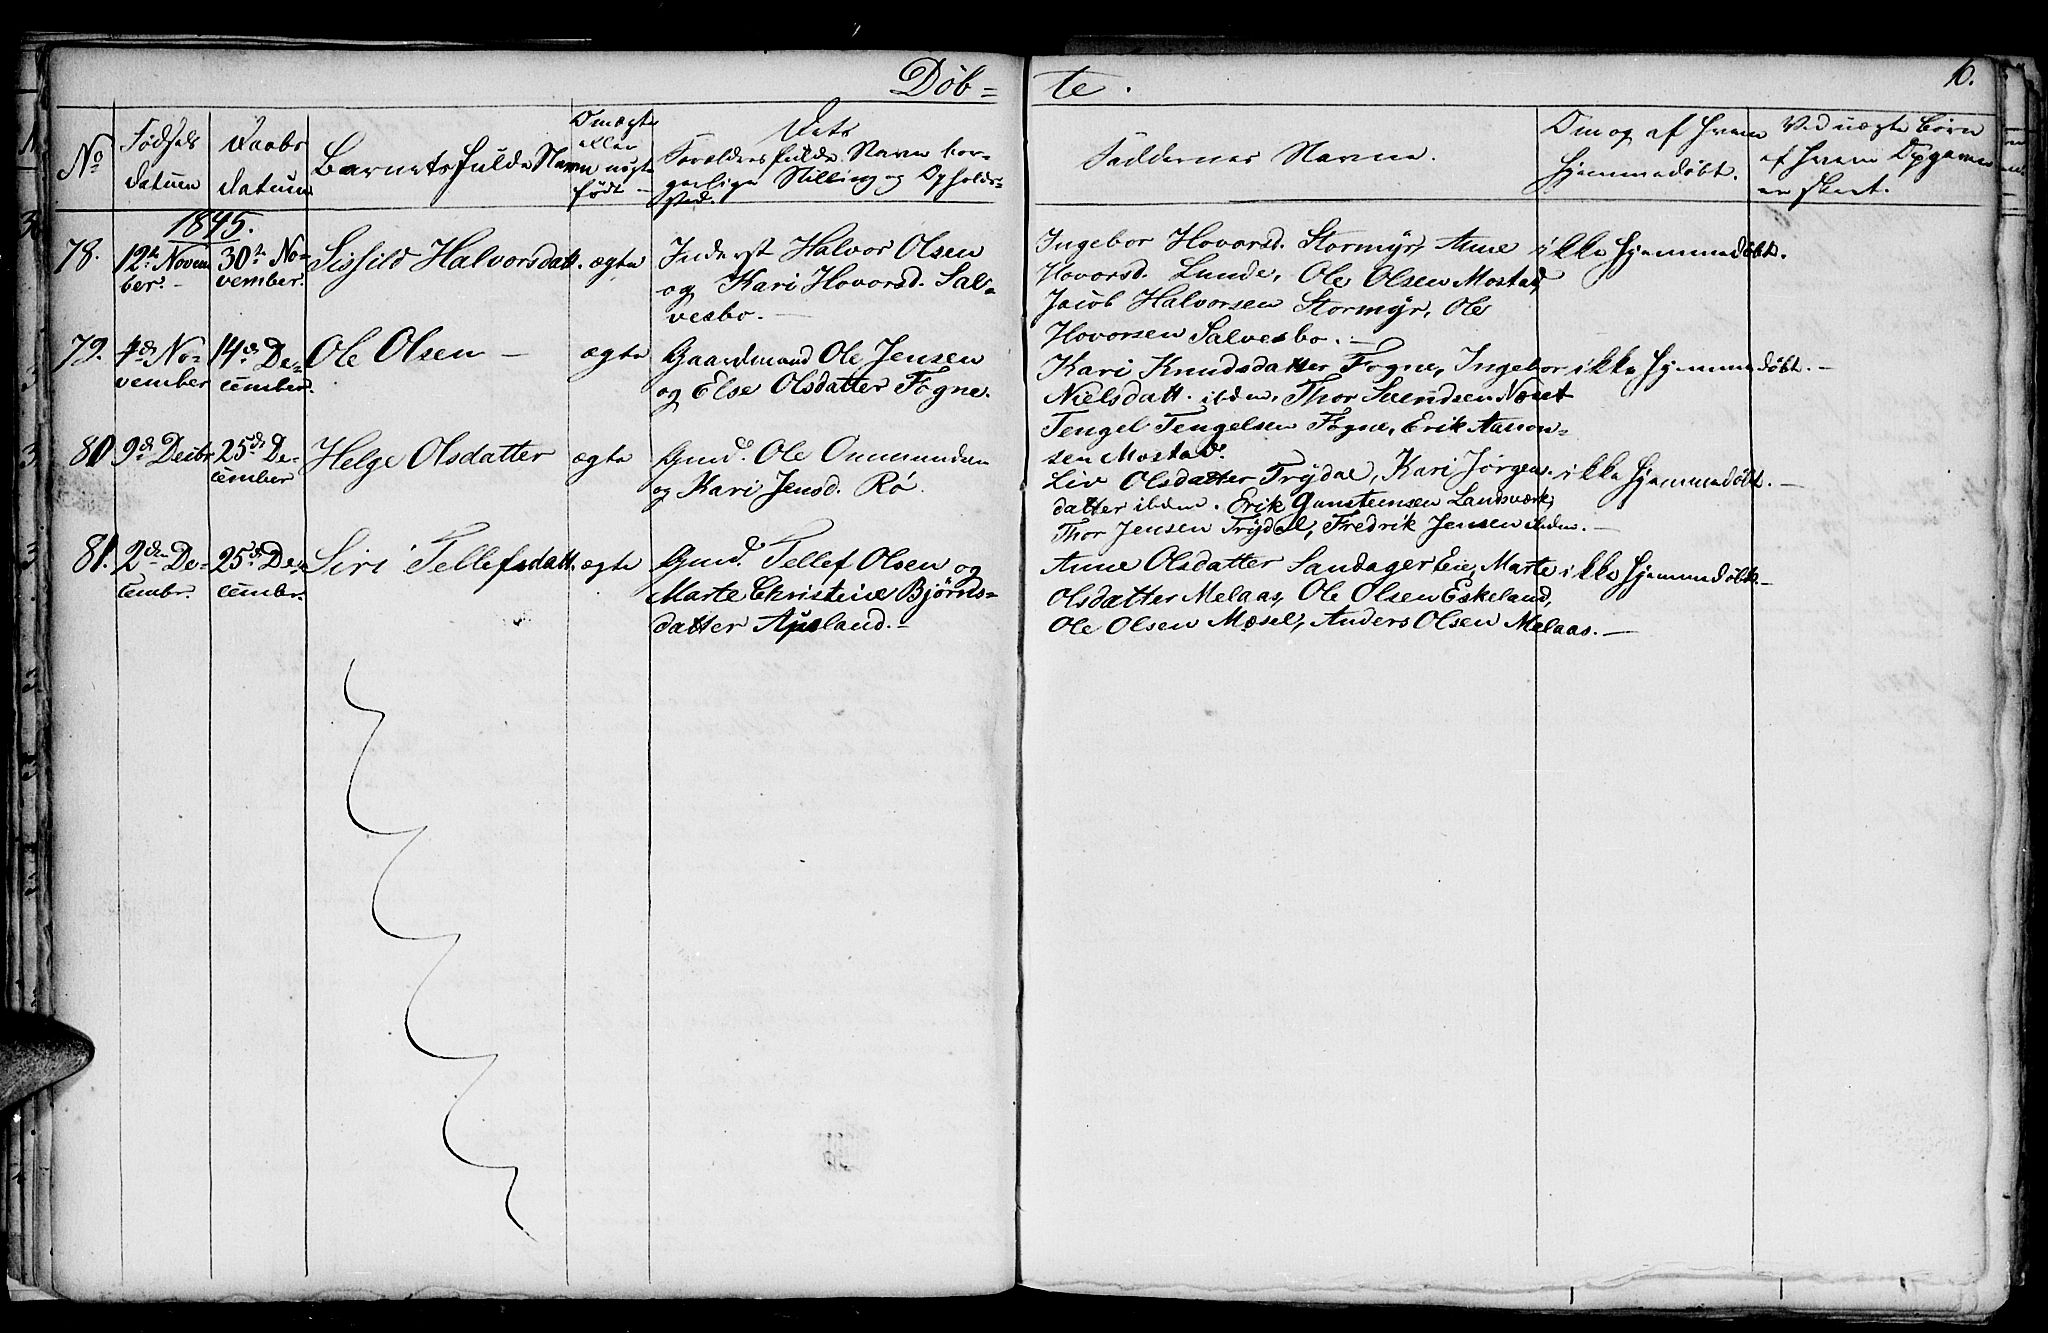 Døb=
te.
6.
No
Fødsels
datum
Daabs
datum
Barnets fulde Navn
Om ægte
eller
uægte
født
Dets
Forældres fulde Navn bor-
gerlige Stilling og Opholds-
sted.
Faddernes Navne.
Om og af hvem
hjemmedøbt.
Ved uægte Børn
af hvem Opgaven
er skeet.
1845.
78.
12te Novem
ber.
30te No-
vember.
Sissild Halvorsdatt.
ægte
Inderst Halvor Olsen
og Kari Hovorsd. Sal-
vesbo.
Ingebor Hovorsd. Stormyr, Anne
Hovorsd. Lunde, Ole Olsen Mostad,
Jacob Halvorsen Stormyr, Ole
Hovorsen Salvesbo.
ikke hjemmedøbt.
79.
4de No-
vember
14de De-
cember.
Ole Olsen
ægte
Gaardmand Ole Jensen
og Else Olsdatter Fogne.
Kari Knudsdatter Fogne, Ingebor
Nielsdatt. ibdm, Thor Svendsen Næset
Tengel Tengelsen Fogne, Erik Aanon-
sen Mostad.
ikke hjemmedøbt.
80
9de Decbr.
25de De-
cember
Helge Olsdatter
ægte
Gmd. Ole Ommundsen
og Kari Jensd. Rø.
Liv Olsdatter Trydal, Kari Jørgens-
datter ibdm. Erik Gunsteinsen Landsværk,
Thor Jensen Trydal, Fredrik Jensen ibdm.
ikke hjemmedøbt.
81.
2den De-
cembr.
25de De-
cembr.
Siri Tellefsdatt.
ægte
Gmd. Tellef Olsen og
Marte Christine Bjørns-
datter Ausland.
Anne Olsdatter Sandager Eie, Marte
Olsdatter Melaas, Ole Olsen Eskeland,
Ole Olsen Mæsel, Anders Olsen Melaas.
ikke hjemmedøbt.